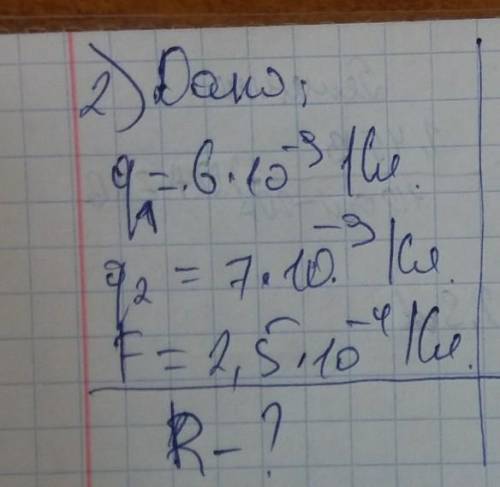 2) Дано:
q₁ = 6·10⁻⁹ Кл.
q₂ = 7·10⁻⁹ Кл.
F = 2,5·10⁻⁴ Кл.
R - ?